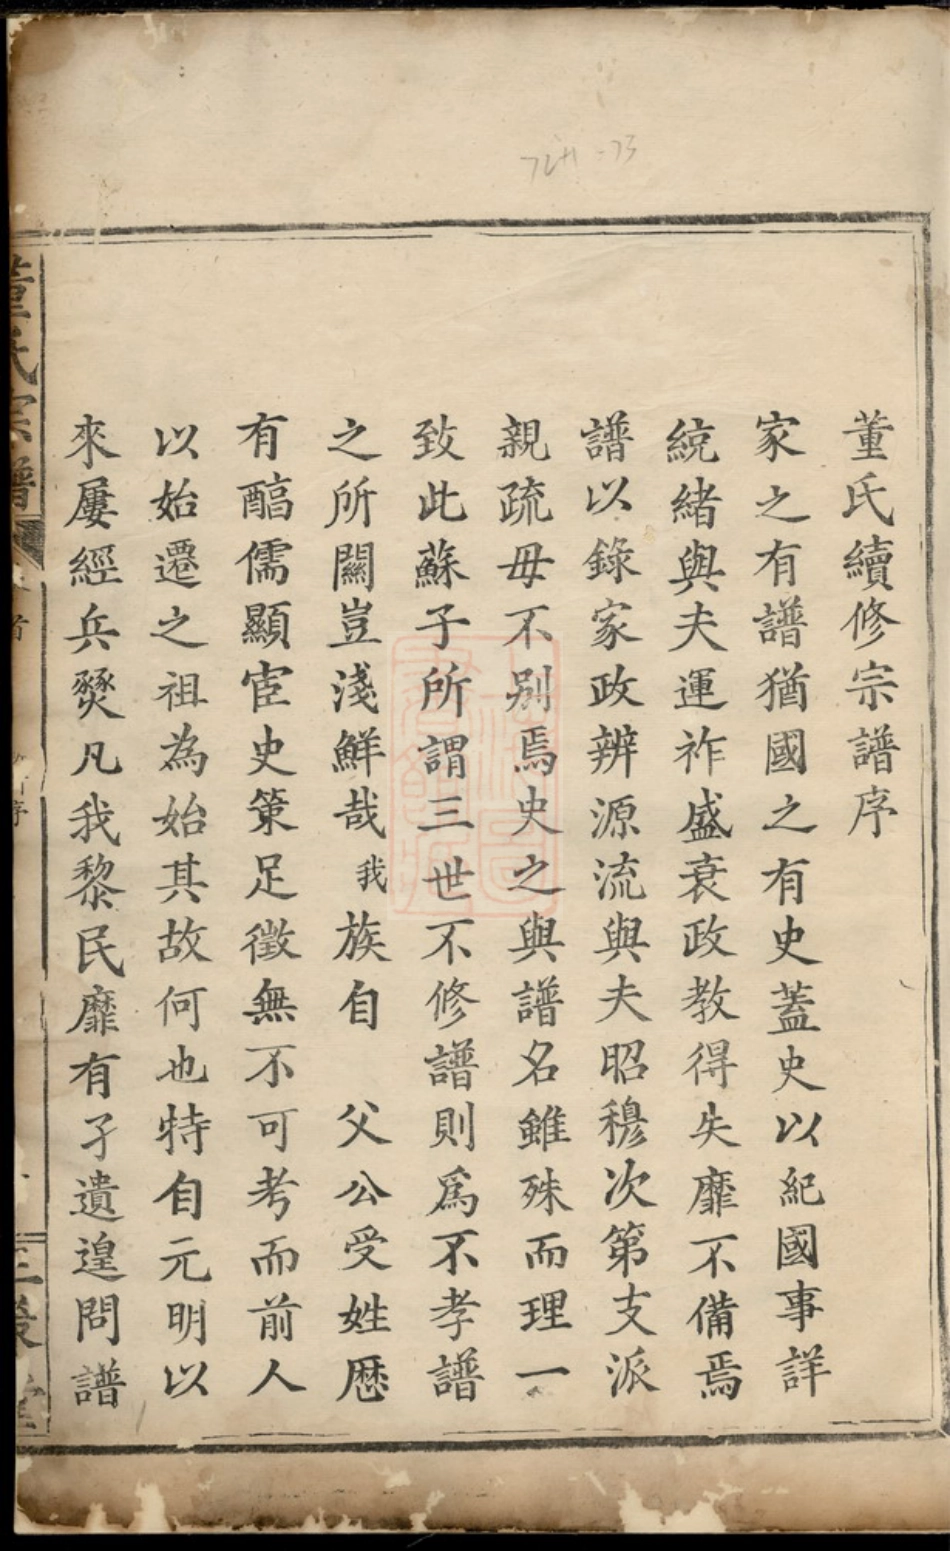 董氏續修宗譜序
家之有譜猶國之有史蓋史以紀國事詳
統緒與夫運祚盛衰政教得失靡不備焉
譜以錄家政辨源流與夫昭穆次第支派
親疏毋不别焉史之與譜名雖殊而理一
致此蘇子所謂三世不修譜則爲不孝譜
之所關豈淺鮮哉我族自 父公受姓歷
有醕儒顯宦史策足徵無不可考而前人
以始遷之祖為始其故何也特自元明以
來屢經兵燹凡我黎民靡有孑遺遑問譜
董氏宗譜